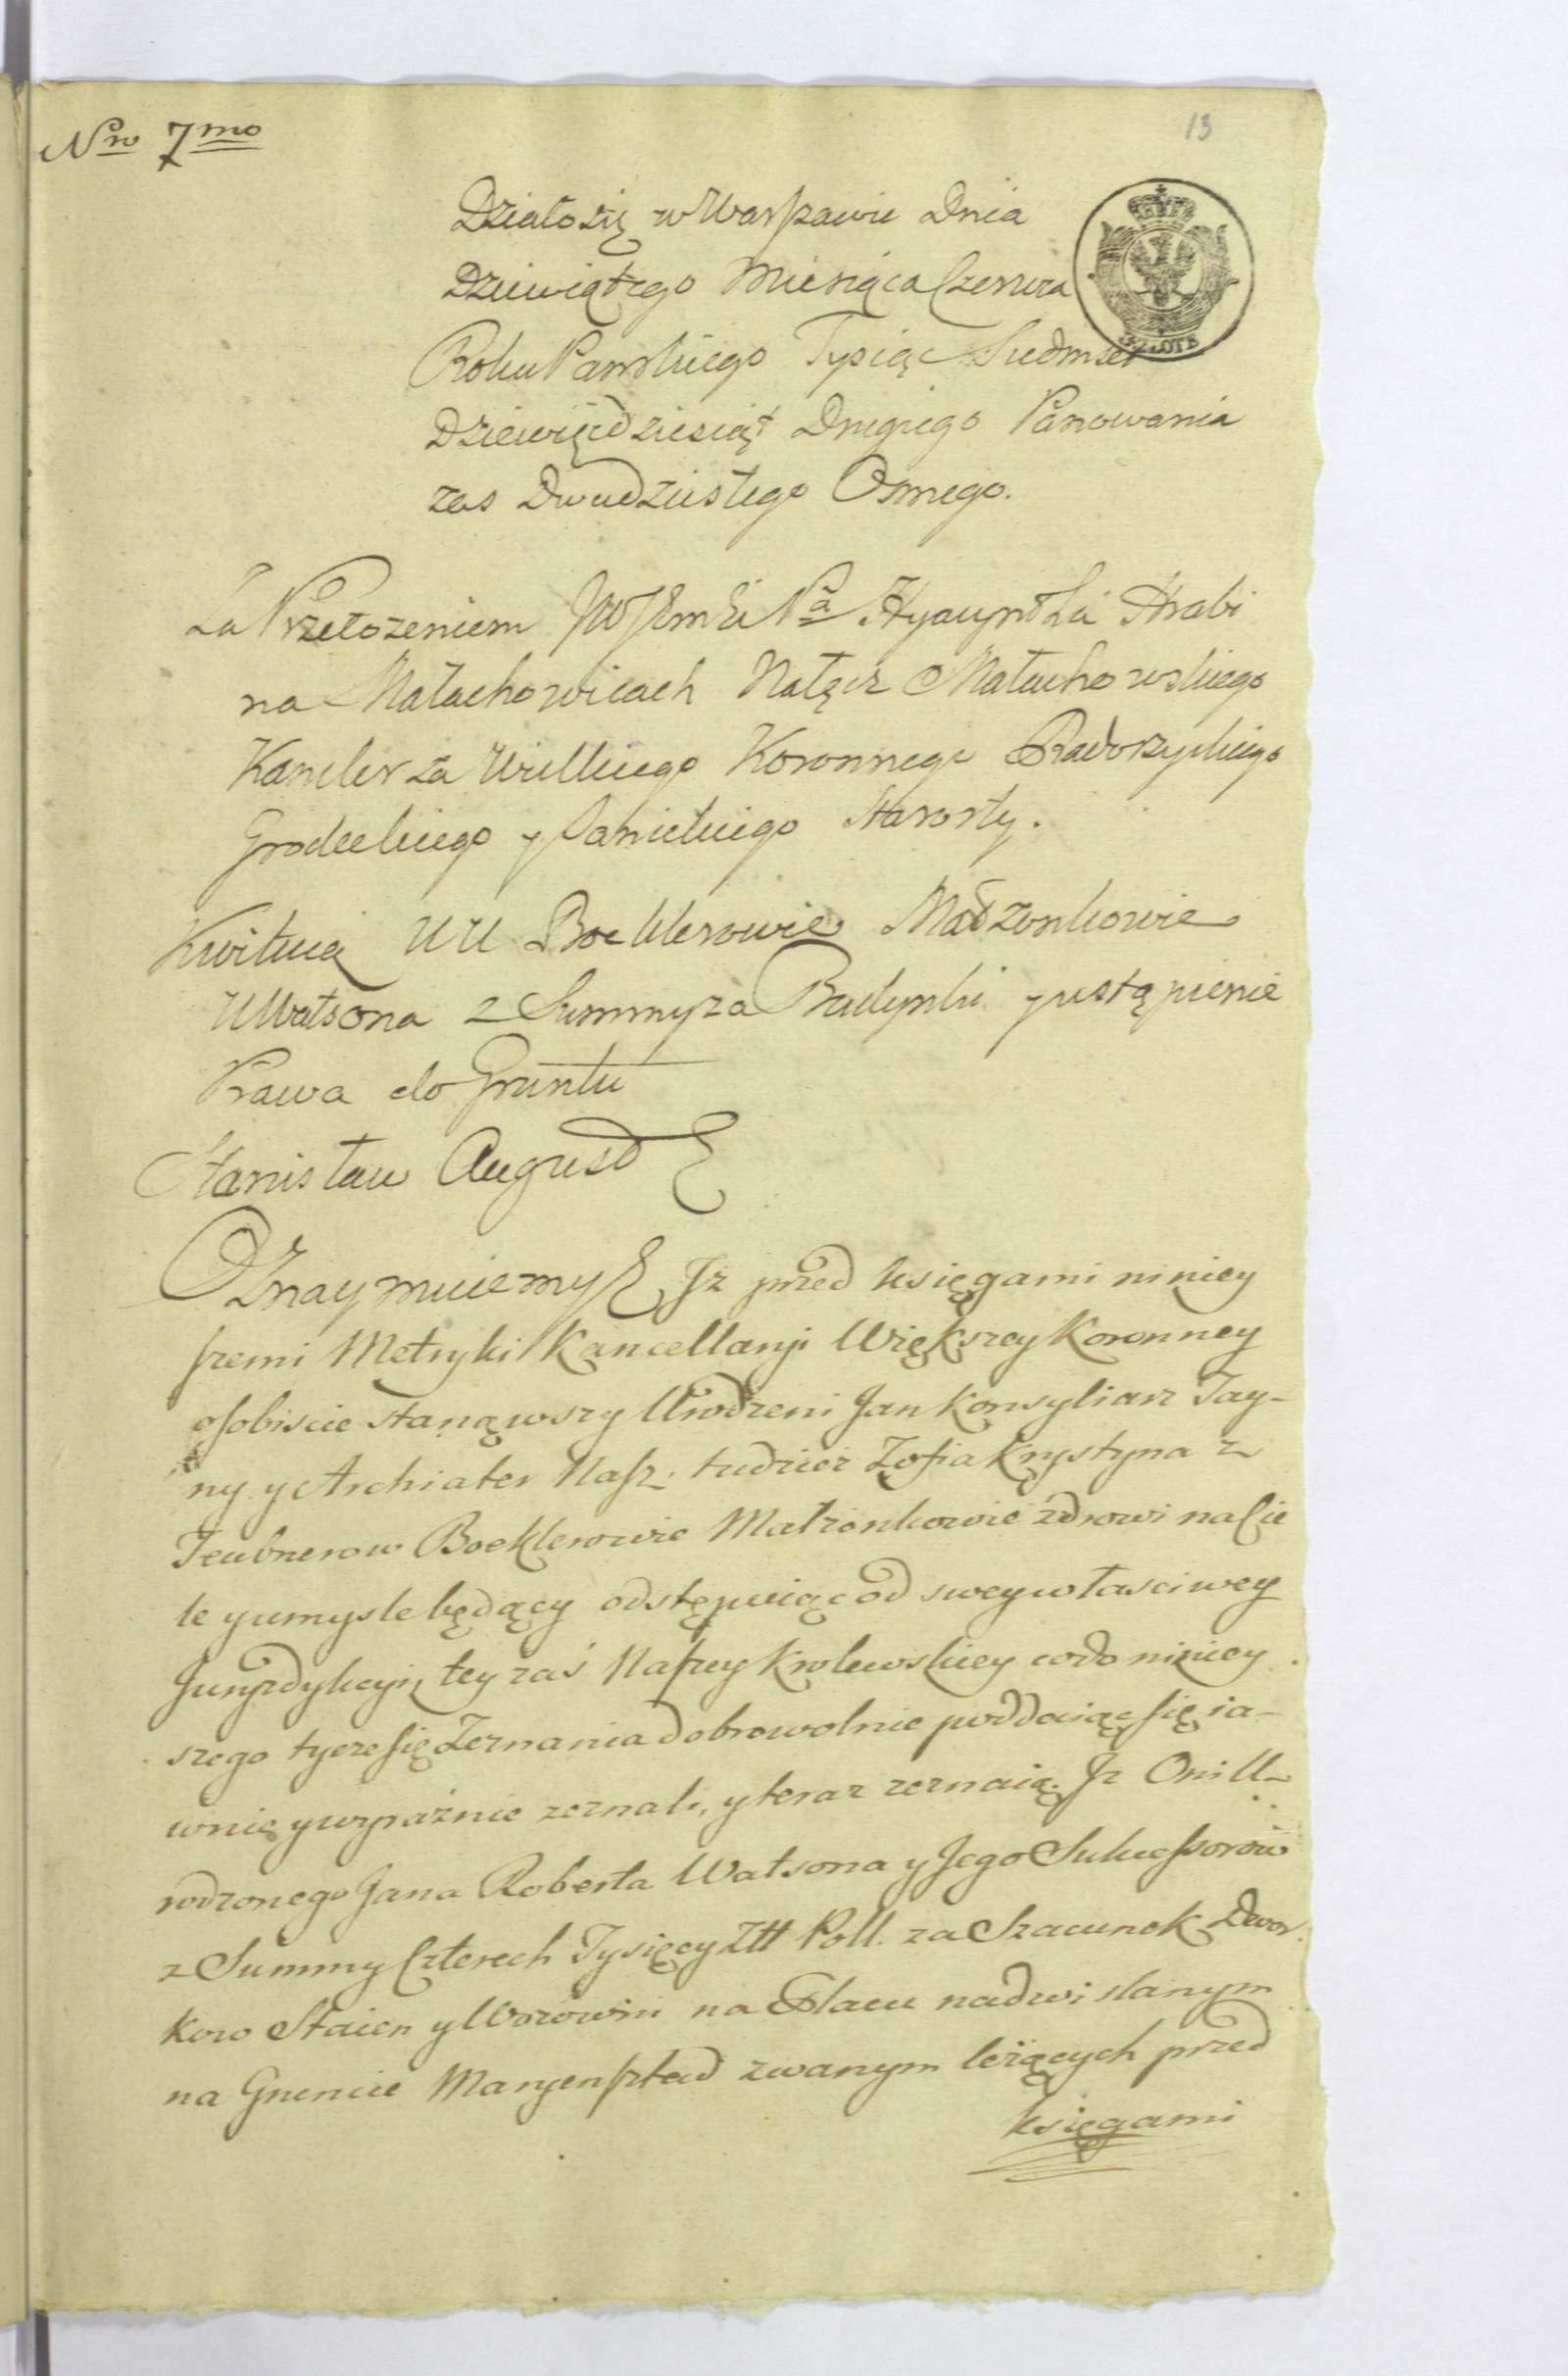 Nro 7mo
13
Działo się w Warszawie Dnia
Dziewiątego Miesiąca Czerwca
Roku Pańskiego Tysiąc Siedmset
Dziewięćdziesiąt Drugiego Panowania
zas Dwudziestego Osmego.
Za Przełożeniem JW Jmci Pa Hyacyntha Hrabi
na Małachowicach Nałęcz Małachowskiego
Kanclerza Wielkiego Koronnego Radoszyckiego
Grodeckiego y Starosty.
Kwituią UU Boeklerowie Małżonkowie
U Watsona z Summy za Budynki y ustąpienie
Prawa do Gruntu
Stanisław August
Oznaymuiemy Jż przed księgami niniey
szemi Metryki Kancellaryi Większey Koronney
osobiscie stanąwszy Urodzeni Jan Konsyliarz Tay-
ny y Archiater Nasz. tudzież Zofia Krystyna z
Teubnerow Boeklerowie Małżonkowie zdrowi na Cie
le y umysle będący odstępuiąc od swey własciwey
Juryzdykcyi, tey zaś Naszey Krolewskiey co do niniey
szego tycze się Zeznania dobrowolnie poddaiąc się ia-
wnie y wyraźnie zeznali, y teraz zeznaią. Jż Oni U-
rodzonego Jana Roberta Watsona y Jego Sukcessorow
z Summy Czterech Tysięcy Złł Poll. za Szacunek Dwor.
kow Staien y Wozowni na Placu nadwislanym
na Gruncie Maryensztad zwanym leżących przed
księgami